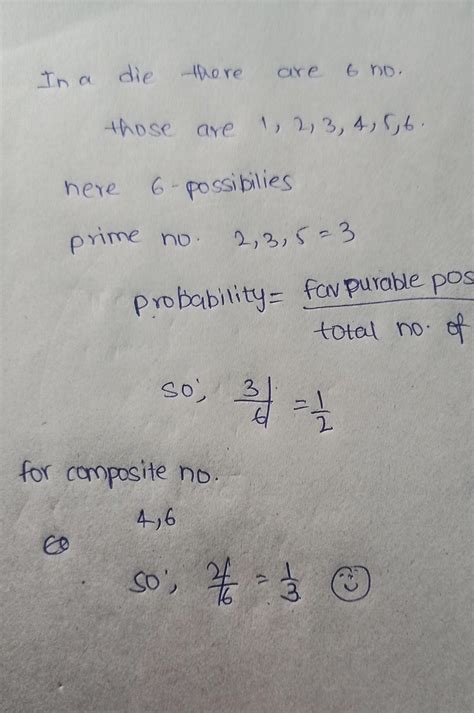 In a die there are 6 no.
those are 1, 2, 3, 4, 5, 6.
here 6-possibilies
prime no. 2, 3, 5 = 3
probability = favpurable pos
total no. of
so; 3/6 = 1/2
for composite no.
4, 6
so; 2/6 = 1/3